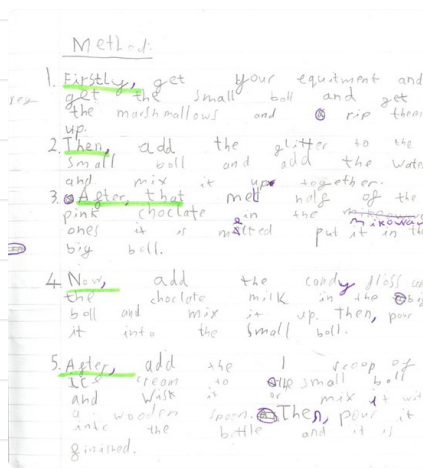 Method:
1. Firstly, get your equitment and
get the small boll and get
the marshmallows and rip them
up.
2. Then, add the glitter to the
small boll and add the water
and mix it up together.
3. After, that melt half of the
pink choclate in the mikowav
ones it is melted put it in the
big boll.
4. Now, add the candy floss
the choclate milk in the big
boll and mix it up. Then, pour
it into the small boll.
5. After, add the 1 scoop of
ice cream to the small boll
and wisk it or mix it wit
a wooden spoon. Then, pour it
into the bottle and it is
finished.